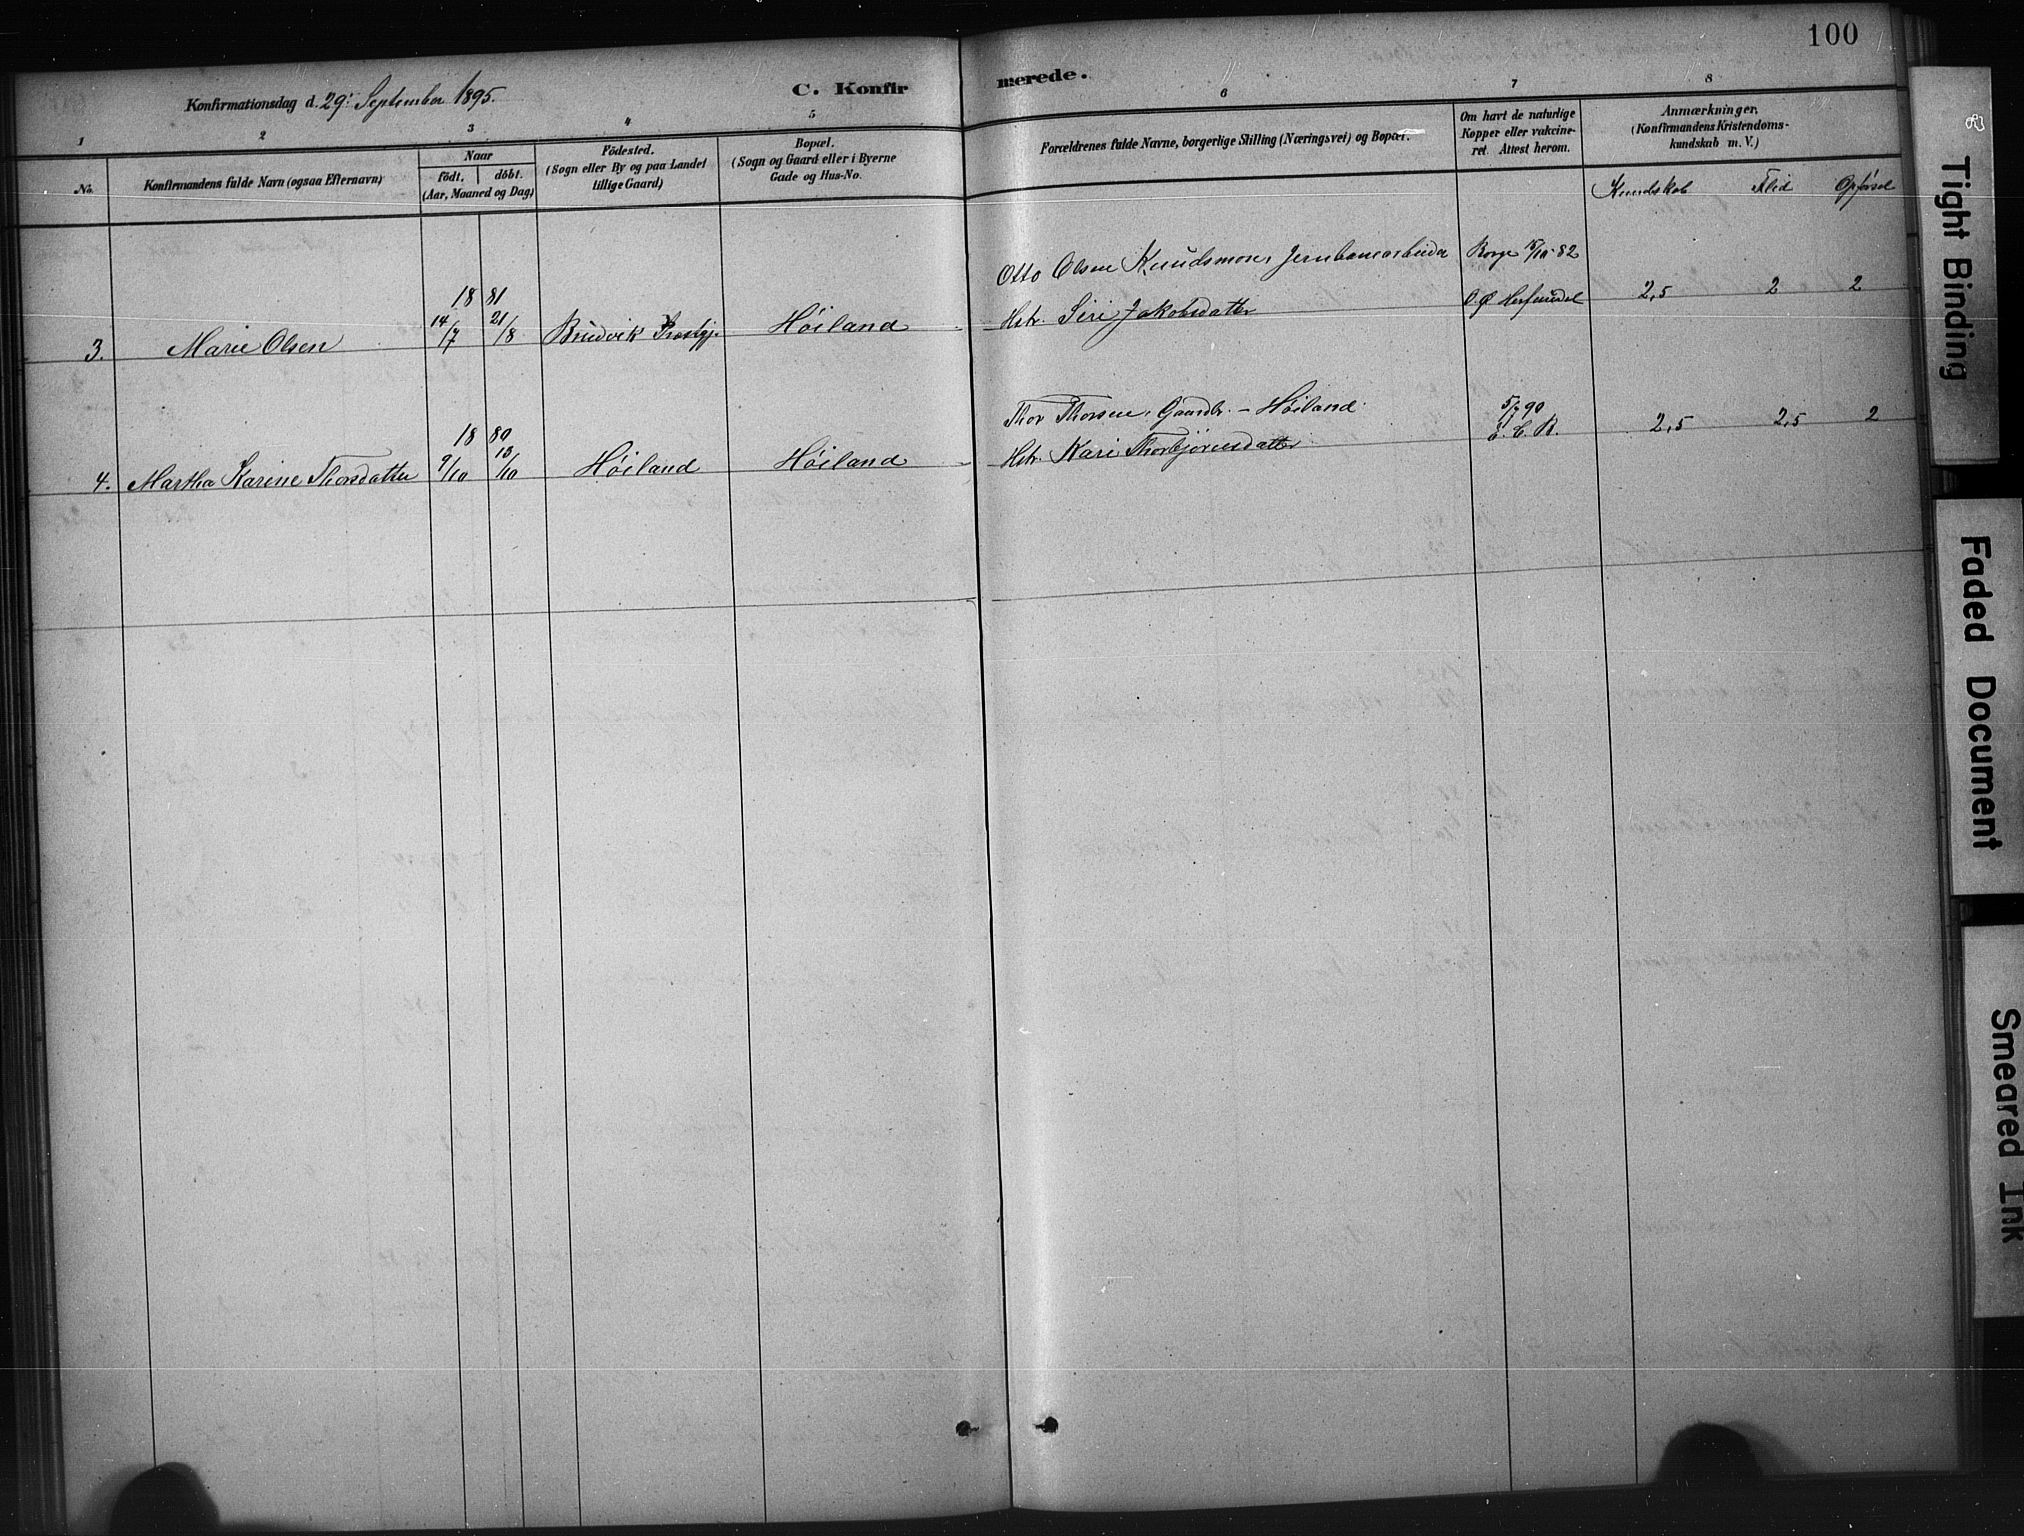 100
Konfirmationsdag d. 29: September 1895.
C. Konfirmerede.
1 2 3 4 5 6 7 8
No.
Konfirmandens fulde Navn (ogsaa Efternavn)
Naar
födt. döbt.
(Aar, Maaned og Dag)
Födested.
(Sogn eller By og paa Landet
tillige Gaard)
Bopæl.
(Sogn og Gaard eller i Byerne
Gade og Hus-No.
Forældrenes fulde Navne, borgerlige Stilling (Næringsvei) og Bopæl.
Om havt de naturlige
Kopper eller vakcine-
ret. Attest herom.
Anmærkninger,
(Konfirmandens Kristendoms-
kundskab m. V.)
Kundskab Flid Opførsel
3. Marie Olsen
18 81
14/7 21/8
Bruvik Præstgj.
Høiland
Otto Olsen Knudsmoen, Jernbanearbeider
Hstr. Siri Jakobsdatter
Borge 15/10-82
2,5 2 2
4. Martha Karine Thorsdatter
18 80
9/10 10/10
Høiland
Høiland
Thor Thorsen, Gaardbr. - Høiland.
Hstr. Kari Thorbjørnsdatter
5/7 90
2,5 2,5 2
83
Tight Binding
Faded Document
Smeared Ink